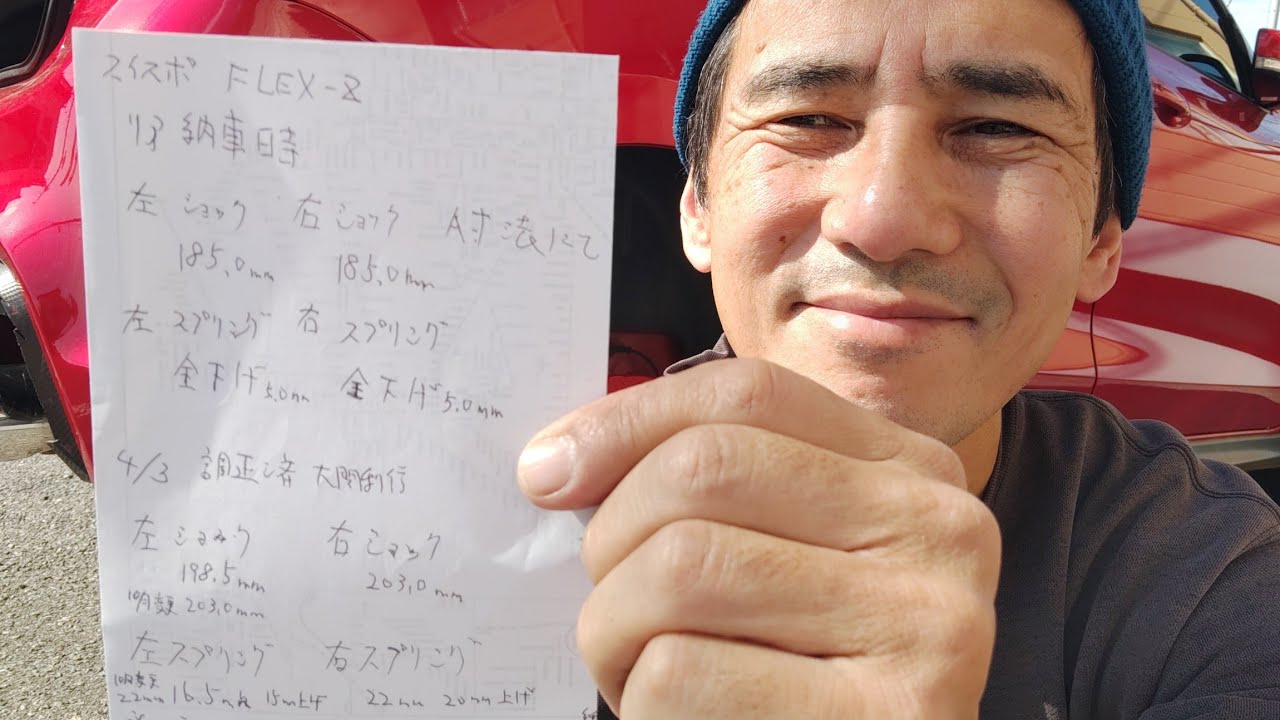 スイスポ FLEX-Z
リア 納車時
左 ショック 右 ショック A寸法にて
185.0mm 185.0mm
左 スプリング 右 スプリング
全下げ5.0mm 全下げ5.0mm
4/3 調正済
左 ショック 右 ショック
198.5mm 203.0mm
203.0mm
左スプリング 右スプリング
22mm 16.5mm 15m上げ 22mm 20mm上げ